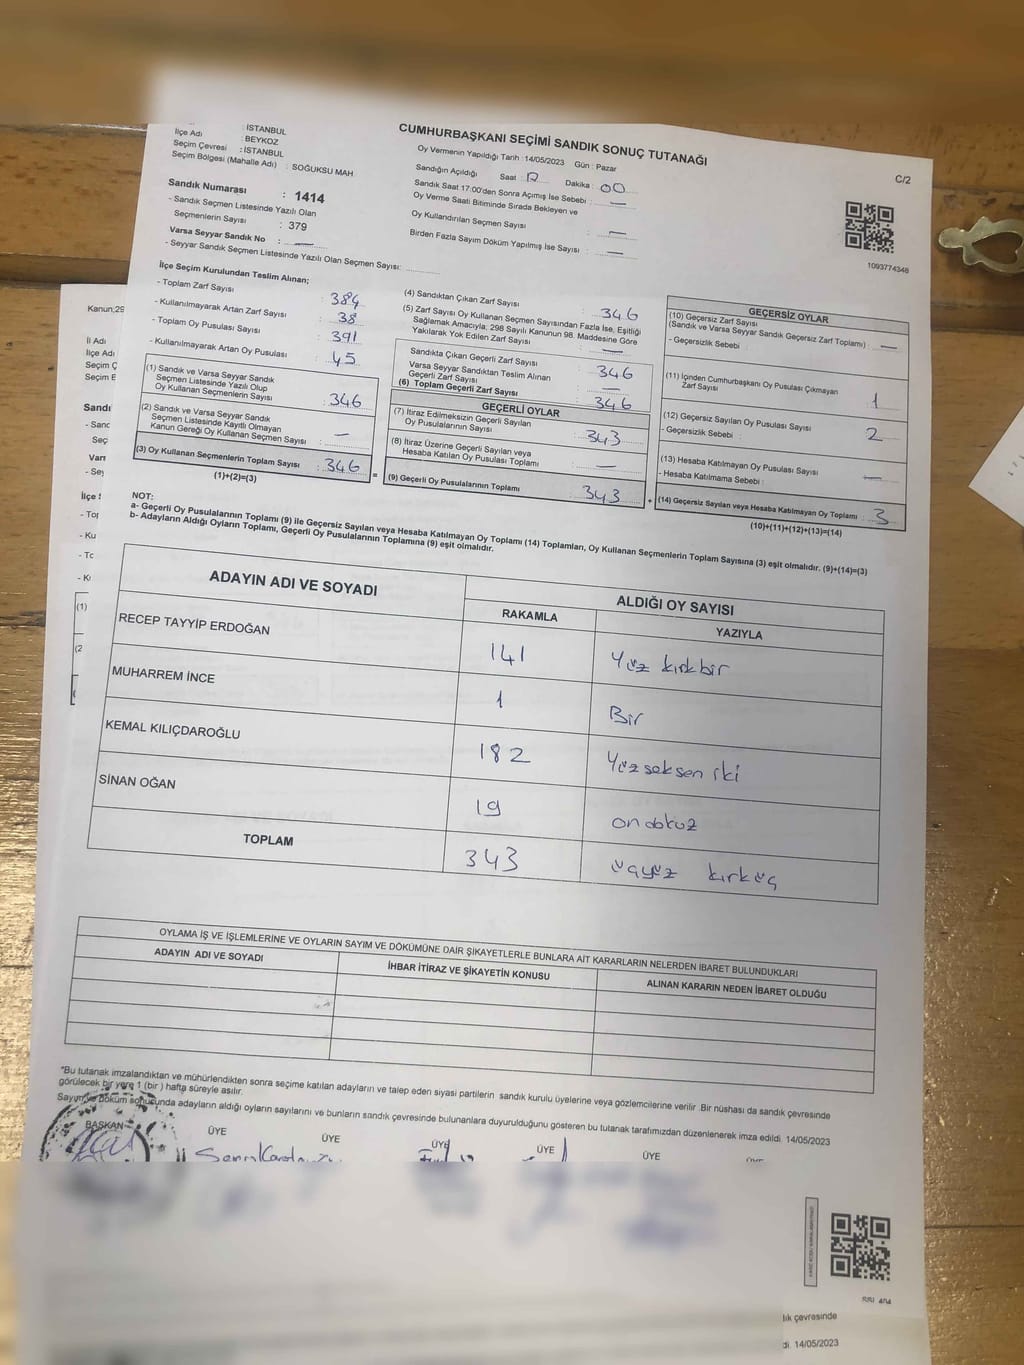 CUMHURBAŞKANI SEÇİMİ SANDIK SONUÇ TUTANAĞI
C/2
: İSTANBUL
İlçe Adı : BEYKOZ
Seçim Çevresi : İSTANBUL
Seçim Bölgesi (Mahalle Adı) : SOĞUKSU MAH
Sandık Numarası : 1414
- Sandık Seçmen Listesinde Yazılı Olan
Seçmenlerin Sayısı : 379
Varsa Seyyar Sandık No : —
- Seyyar Sandık Seçmen Listesinde Yazılı Olan Seçmen Sayısı:
Oy Vermenin Yapıldığı Tarih : 14/05/2023 Gün : Pazar
Sandığın Açıldığı Saat : 17 Dakika : 00
Sandık Saat 17:00'den Sonra Açılmış İse Sebebi : —
Oy Verme Saati Bitiminde Sırada Bekleyen ve
Oy Kullandırılan Seçmen Sayısı : —
Birden Fazla Sayım Döküm Yapılmış İse Sayısı : —
1093774348
İlçe Seçim Kurulundan Teslim Alınan;
- Toplam Zarf Sayısı : 384
- Kullanılmayarak Artan Zarf Sayısı : 38
- Toplam Oy Pusulası Sayısı : 391
- Kullanılmayarak Artan Oy Pusulası : 45
(1) Sandık ve Varsa Seyyar Sandık
Seçmen Listesinde Yazılı Olup
Oy Kullanan Seçmenlerin Sayısı : 346
(2) Sandık ve Varsa Seyyar Sandık
Seçmen Listesinde Kayıtlı Olmayan
Kanun Gereği Oy Kullanan Seçmen Sayısı : —
(3) Oy Kullanan Seçmenlerin Toplam Sayısı : 346
(1)+(2)=(3)
(4) Sandıktan Çıkan Zarf Sayısı : 346
(5) Zarf Sayısı Oy Kullanan Seçmen Sayısından Fazla İse, Eşitliği
Sağlamak Amacıyla; 298 Sayılı Kanunun 98. Maddesine Göre
Yakılarak Yok Edilen Zarf Sayısı : —
Sandıkta Çıkan Geçerli Zarf Sayısı : 346
Varsa Seyyar Sandıktan Teslim Alınan
Geçerli Zarf Sayısı : —
(6) Toplam Geçerli Zarf Sayısı : 346
=
GEÇERLİ OYLAR
(7) İtiraz Edilmeksizin Geçerli Sayılan
Oy Pusulalarının Sayısı : 343
(8) İtiraz Üzerine Geçerli Sayılan veya
Hesaba Katılan Oy Pusulası Toplamı : —
(9) Geçerli Oy Pusulalarının Toplamı : 343
+
GEÇERSİZ OYLAR
(10) Geçersiz Zarf Sayısı
(Sandık ve Varsa Seyyar Sandık Geçersiz Zarf Toplamı) : —
- Geçersizlik Sebebi :
(11) İçinden Cumhurbaşkanı Oy Pusulası Çıkmayan
Zarf Sayısı : 1
(12) Geçersiz Sayılan Oy Pusulası Sayısı : 2
- Geçersizlik Sebebi :
(13) Hesaba Katılmayan Oy Pusulası Sayısı : —
- Hesaba Katılmama Sebebi :
(14) Geçersiz Sayılan veya Hesaba Katılmayan Oy Toplamı : 3
(10)+(11)+(12)+(13)=(14)
NOT:
a- Geçerli Oy Pusulalarının Toplamı (9) ile Geçersiz Sayılan veya Hesaba Katılmayan Oy Toplamı (14) Toplamları, Oy Kullanan Seçmenlerin Toplam Sayısına (3) eşit olmalıdır. (9)+(14)=(3)
b- Adayların Aldığı Oyların Toplamı, Geçerli Oy Pusulalarının Toplamına (9) eşit olmalıdır.
ADAYIN ADI VE SOYADI ALDIĞI OY SAYISI
RAKAMLA YAZIYLA
RECEP TAYYİP ERDOĞAN 141 Yüz kırkbir
MUHARREM İNCE 1 Bir
KEMAL KILIÇDAROĞLU 182 Yüzseksen iki
SİNAN OĞAN 19 ondokuz
TOPLAM 343 üçyüz kırküç
OYLAMA İŞ VE İŞLEMLERİNE VE OYLARIN SAYIM VE DÖKÜMÜNE DAİR ŞİKAYETLERLE BUNLARA AİT KARARLARIN NELERDEN İBARET BULUNDUKLARI
ADAYIN ADI VE SOYADI İHBAR İTİRAZ VE ŞİKAYETİN KONUSU ALINAN KARARIN NEDEN İBARET OLDUĞU
"Bu tutanak imzalandıktan ve mühürlendikten sonra seçime katılan adayların ve talep eden siyasi partilerin sandık kurulu üyelerine veya gözlemcilerine verilir. Bir nüshası da sandık çevresinde
görülecek bir yere 1 (bir ) hafta süreyle asılır.
Sayım ve döküm sonucunda adayların aldığı oyların sayılarını ve bunların sandık çevresinde bulunanlara duyurulduğunu gösteren bu tutanak tarafımızdan düzenlenerek imza edildi. 14/05/2023
BAŞKAN ÜYE ÜYE ÜYE ÜYE ÜYE
Kanun;29
İl Adı
İlçe Adı
Seçim Ç
Seçim B
Sandı
- Sanc
Seç
Varr
- Sey
İlçe S
- Top
- Ku
- To
- K
(1)
(2
lık çevresinde
di. 14/05/2023